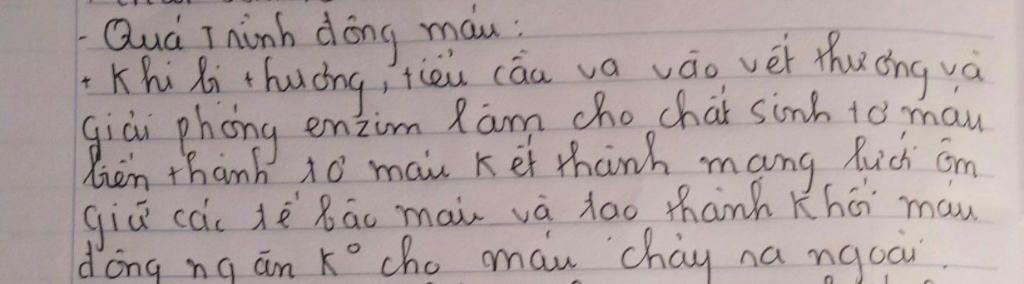 - Quá Trình đông máu :
+ Khi bị thương, tiểu cầu va vào vết thương và
giải phóng enzim làm cho chất sinh tơ máu
biến thành tơ máu kết thành mạng lưới ôm
giữ các tế bào máu và tạo thành khối máu
đông ngăn k° cho máu chảy ra ngoài.